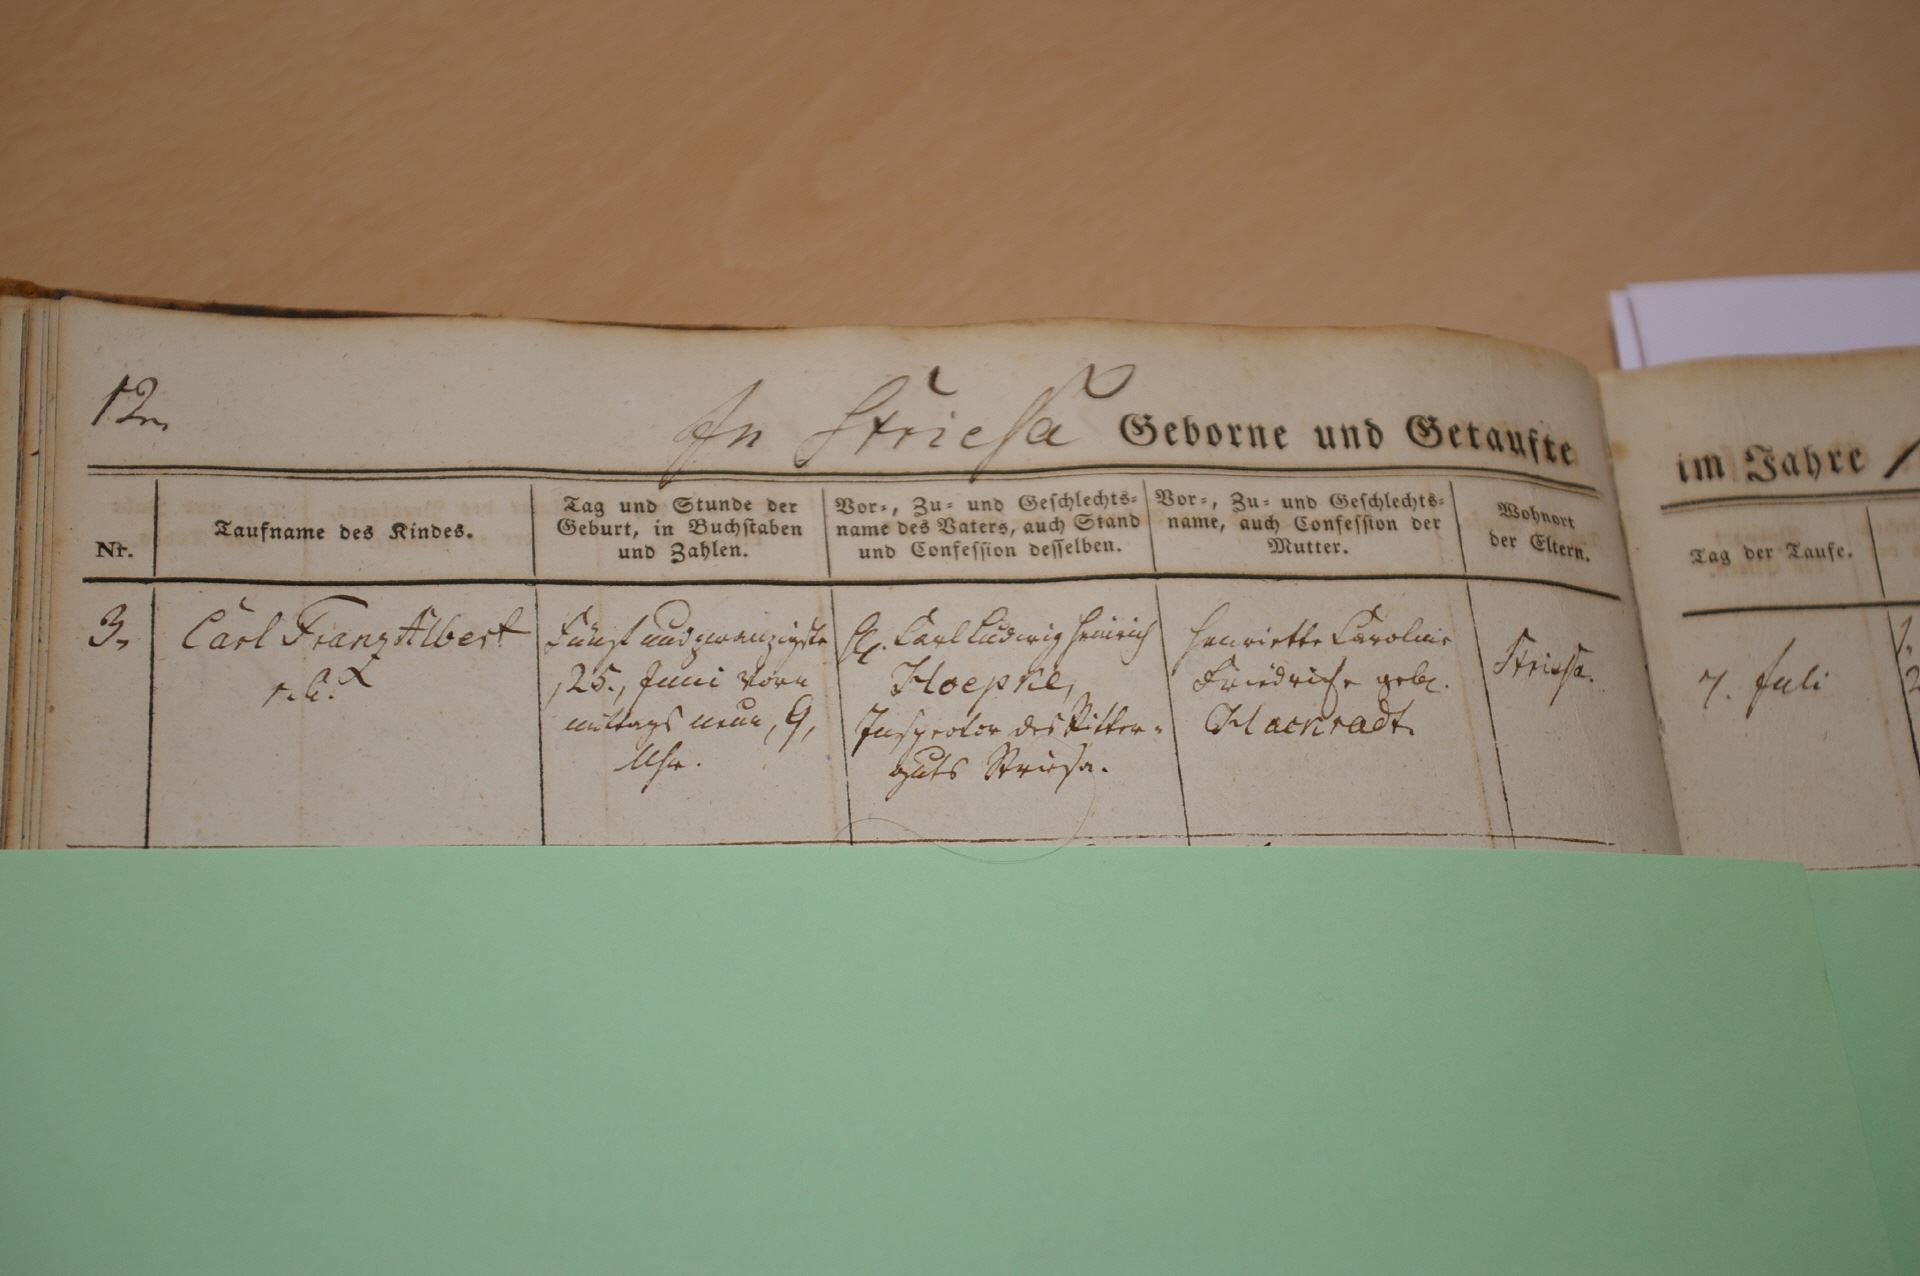 12.
In Striesa Geborne und Getaufte
im Jahre
Nr.
Taufname des Kindes.
Tag und Stunde der
Geburt, in Buchstaben
und Zahlen.
Vor-, Zu- und Geschlechts-
name des Vaters, auch Stand
und Confession desselben.
Vor-, Zu- und Geschlechts-
name, auch Confession der
Mutter.
Wohnort
der Eltern.
Tag der Taufe.
3.
Carl Franz Albert
Fünf und zwanzigste
25., Juni Vor-
mittags neun, 9,
Uhr.
Carl Ludwig Heinrich
Hoepke,
Inspector des Ritter-
guts Striesa.
Henriette Caroline
Friedricke geb.
Hackradt.
Striesa.
7. Juli
1.
2